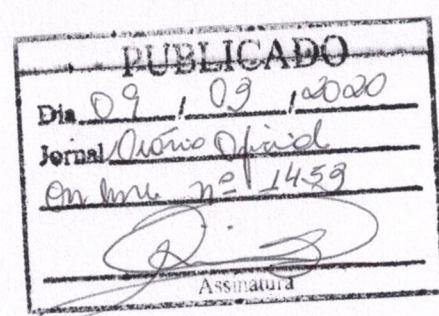 PUBLICADO
Dia 09 / 09 / 2020
Jornal Diário Oficial
On line nº 1459
Assinatura